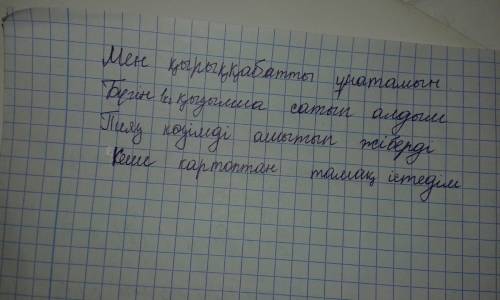 Мен қырыққабатты ұнатамын
Бүгін қызылша сатып алдым
Пияз көзімді ашытып жіберді
Кеше картоптан тамақ істедім